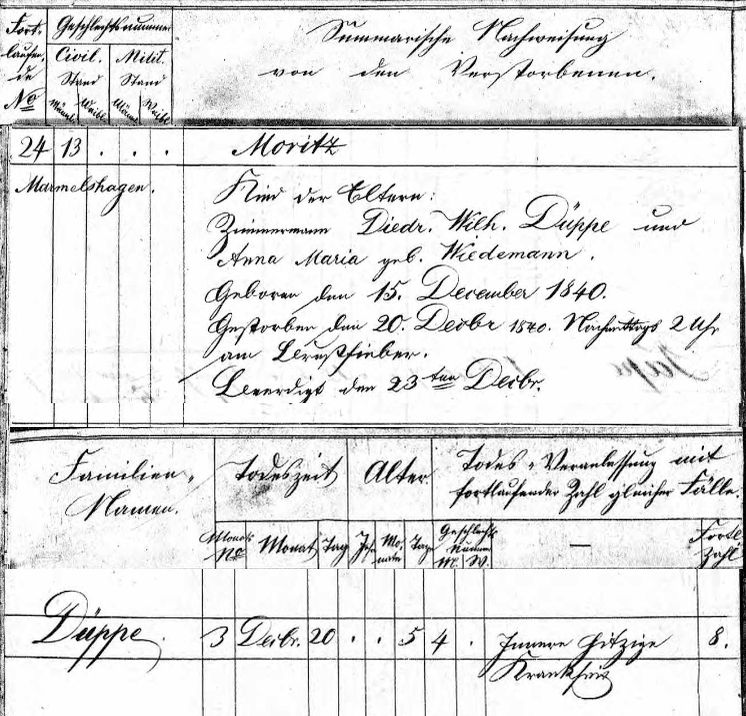 Fort-
laufen-
de
No
Geschlechtsnummer
Civil-
Stand
Milit.
Stand
Männl.
Weibl.
Männl.
Weibl.
Summarische Nachweisung
von den Verstorbenen.
24 13 . . . Moritz
Marmelshagen.
Kind der Eltern:
Zimmermann Diedr. Wilh. Düppe und
Anna Maria geb. Wiedemann.
Geboren den 15. December 1840.
Gestorben den 20. Decbr 1840. Nachmittags 2 Uhr
am Brustfieber.
Beerdigt den 23ten Decbr.
Familien-
Namen.
Todeszeit
Monats
No
Monat
Tag
Alter.
Jahr
Mo-
nate
Tage
Todes-Veranlassung mit
fortlaufender Zahl gleicher Fälle.
Geschlechts
Numer
M. W.
—
Fortl.
Zahl
Düppe. 3 Decbr. 20 . . 5 4 . Innere hitzige 8.
Krankheit